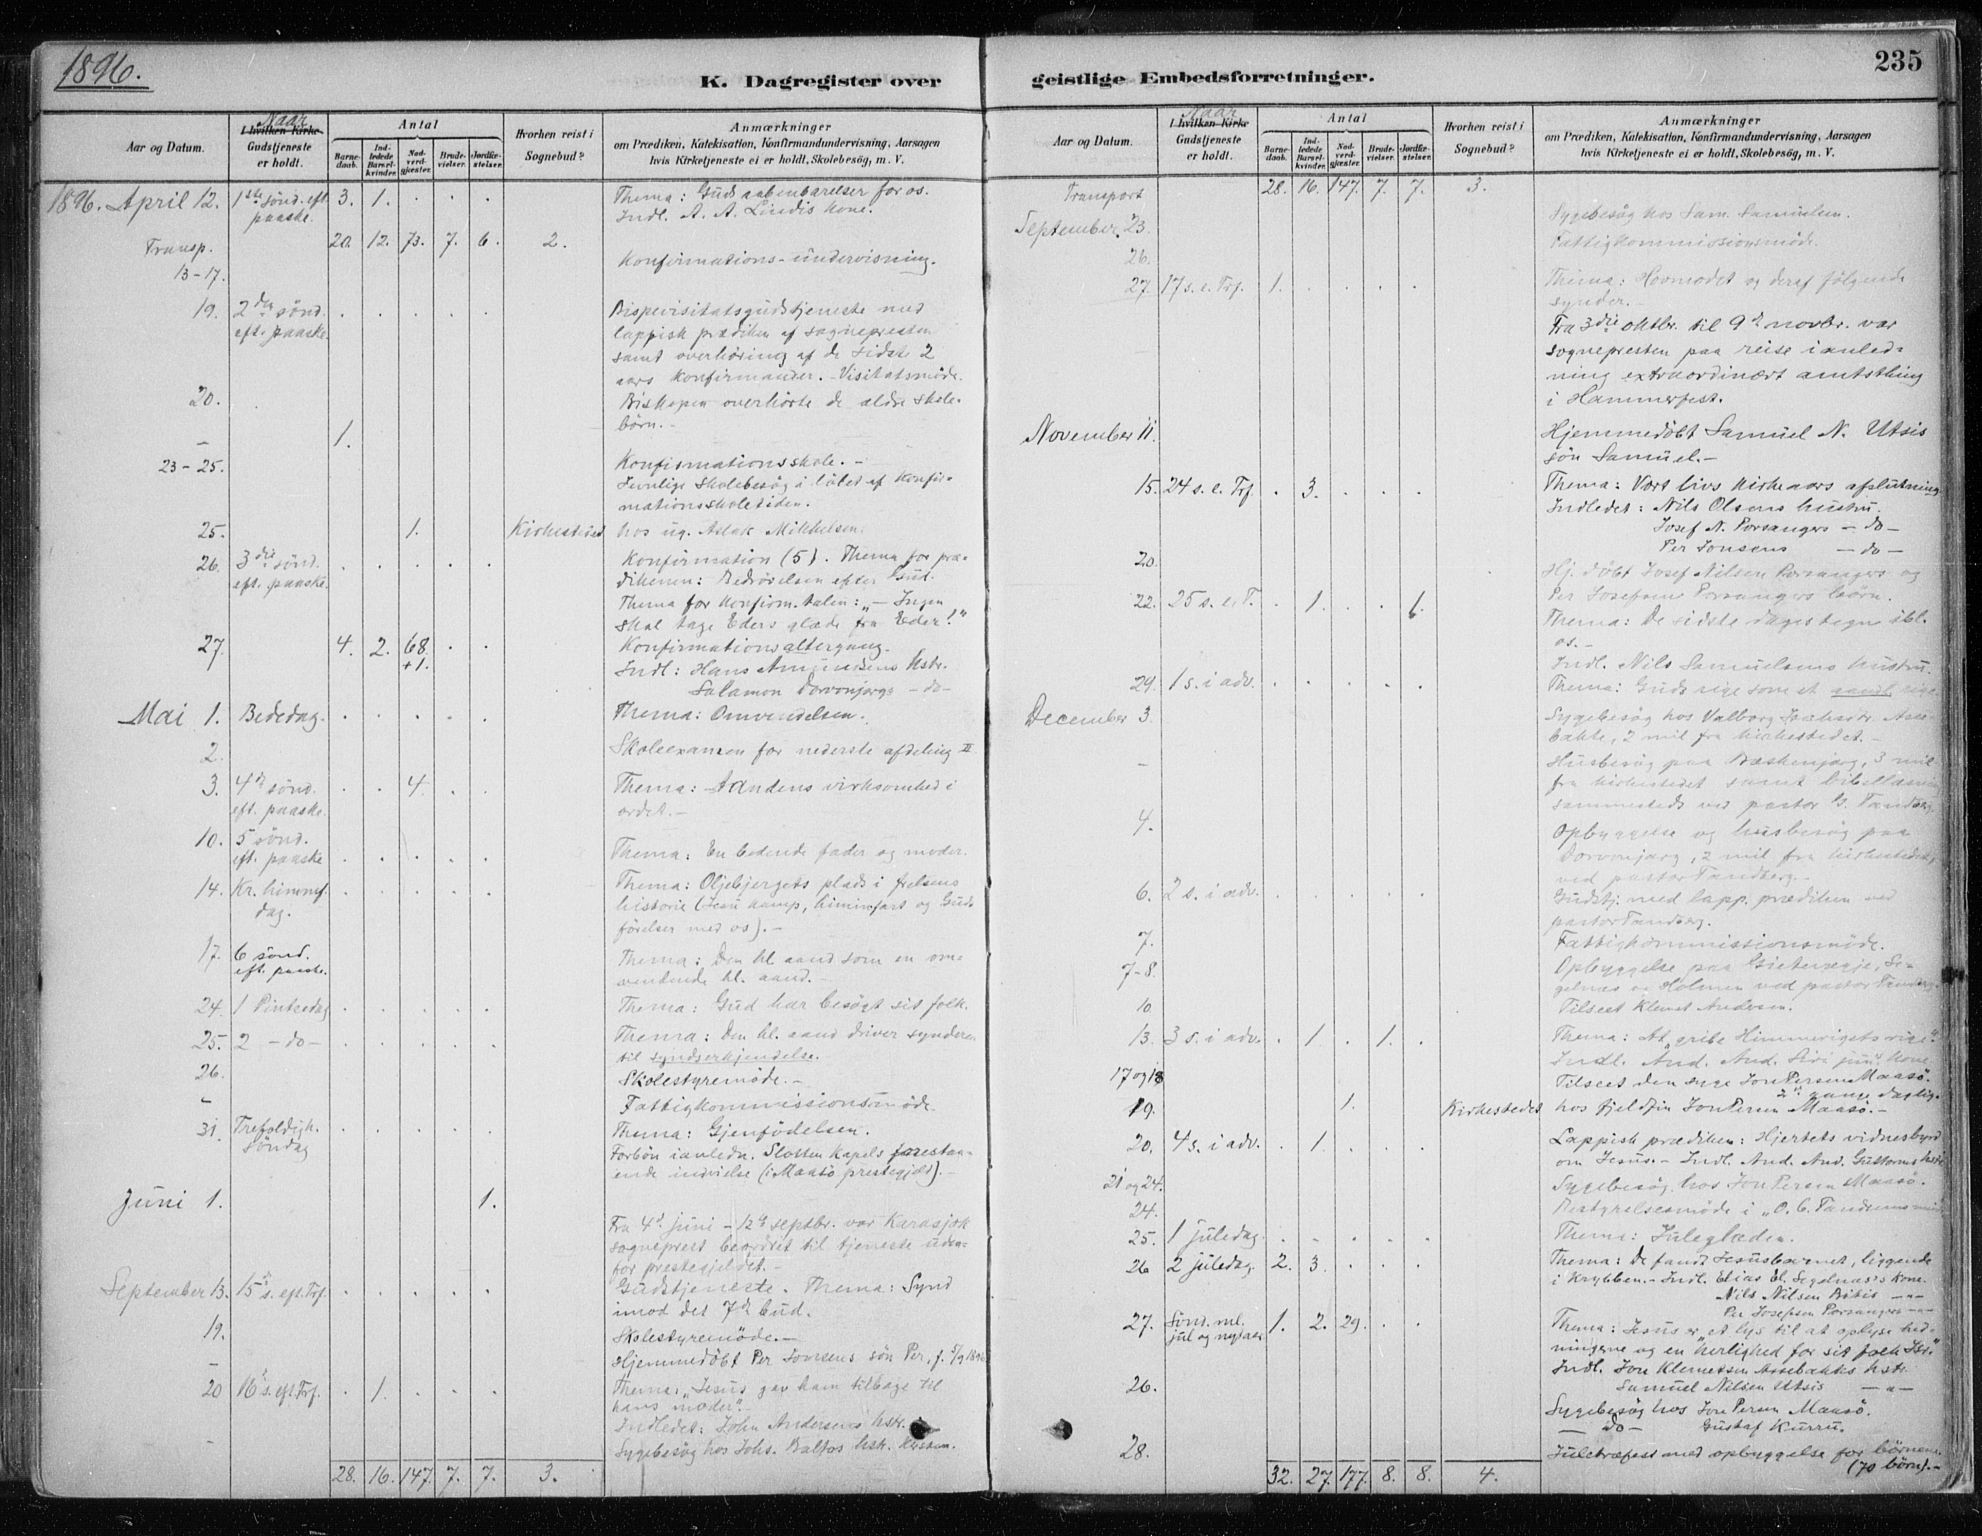 1896.
K. Dagregister over
Aar og Datum.
Naar
I hvilken Kirke
Gudstjeneste
er holdt.
Antal
Barne-
daab.
Ind-
ledede
Barsel-
kvinder.
Nad-
verd-
gjæster.
Brude-
vielser.
Jordfæ-
stelser.
Hvorhen reist i
Sognebud?
Anmærkninger
om Prædiken, Katekisation, Konfirmandundervisning, Aarsagen
hvis Kirketjeneste ei er holdt, Skolebesög, m. V.
1896. April 12. 1ste sönd. eft. 3. 1. . . . Thema: Guds aabenbarelser for os.
paaske. Indl. A. A. Lindis kone.
Transp. 20. 12. 73. 7. 6. 2.
13-17. Konfirmations-undervisning.
19. 2den sönd. . . . . . Bispevisitatsgudstjeneste med
eft. paaske. lappisk prædiken af sognepresten
samt overhöring af de sidste 2
aars konfirmander. - Visitatsmöde.
20. Biskopen overhörte de ældre skole-
börn. -
- 1.
23-25. Konfirmationsskole. -
Jevnlige skolebesög i löbet af konfir-
mationsskoletiden.
25. 1. Kirkestedet hos ug. Aslak Mikkelsen.
26. 3die sönd. . . . . . Konfirmation (5). Thema for præ-
eft. paaske. dikenen: Bedrövelsen efter Gud.
Thema for konfirm. talen: "- Ingen
skal tage Eders glæde fra Eder!"
27. 4. 2. 68. . . Konfirmationsaltergang.
+1. Indl: Hans Amundsens hstr.
Salamon Dorvonjargs -do-
Mai 1. Bededag. . . . . . Thema: Omvendelsen.
2. Skoleexamen for nederste afdeling II
3. 4de sönd. . . 4. . . Thema: Aandens virksomhed i
eft. paaske. ordet. -
10. 5 sönd.
eft. paaske . . . . . Thema: En bedende fader og moder.
14. Kr. himmelf. . . . . . Thema: Oljebjergets plads i frelsens
dag. historie (Jesu kamp, himmelfart og Guds
förelser med os). -
17. 6 sönd.
eft. paaske. Thema: Den hl. aand som en om-
vendende hl. aand. -
24. 1 Pintsedag . . . . . Thema: Gud har besögt sit folk.
25. 2 -do- . . . . . Thema: Den hl. aand driver synderen
til syndserkjendelse. -
26. Skolestyremöde. -
- Fattigkommissionsmöde.
31. Trefoldigh. . . . . . Thema: Gjenfödelsen.
Söndag Forbön i anledn. Slotten kapels forestaa-
ende indvielse (i Maasö prestegjeld). -
Juni 1. 1.
Fra 4de juni - 12te septbr. var Karasjok
sogneprest beordret til tjeneste uden-
for prestegjeldet. -
September 13. 15de s. eft. Trf. . . . . . Gudstjeneste. Thema: Synd
imod det 7de bud.
19. Skolestyremöde. -
- Hjemmedöbt Per Jonsens sön Per, f. 5/9 1896
20 16de s. eft. Trf. . 1. . . . Thema: "Jesus gav ham tilbage til
hans moder". -
Indledet: John Andersens hstr.
- Sygebesög hos Johs. Baltos hstr. Kirsten.
28. 16. 147. 7. 7. 3.
235
geistlige Embedsforretninger.
Aar og Datum.
Naar
I hvilken Kirke
Gudstjeneste
er holdt.
Antal
Barne-
daab.
Ind-
ledede
Barsel-
kvinder.
Nad-
verd-
gjæster.
Brude-
vielser.
Jordfæ-
stelser.
Hvorhen reist i
Sognebud?
Anmærkninger
om Prædiken, Katekisation, Konfirmandundervisning, Aarsagen
hvis Kirketjeneste ei er holdt, Skolebesög, m. V.
Transport 28. 16. 147. 7. 7. 3.
September 23. Sygebesög hos Sam. Samuelsen.
26. Fattigkommissionsmöde.
27. 17 s. e. Trf. 1. . . . . Thema: Hovmodet og deraf fölgende
synder. -
Fra 3die oktbr. til 9de novbr. var
sognepresten paa reise i anled-
ning extraordinært amtsthing
i Hammerfest.
November 11. Hjemmedöbt Samuel N. Utsis
sön Samuel. -
15. 24 s. e. Trf. . 3. . . . Thema: Vort livs kirkeaars afslutning
Indledet: Nils Olsens hustru.
Josef N. Porsangers -do-
Per Jonsens -do-
20. Hj. döbt Josef Nilsen Porsangers og
Per Josefsen Porsangers börn.
22. 25 s. e. T. . 1. . . 1. Thema: De sidste dages tegn ibl.
os. -
Indl. Nils Samuelsens hustru.
29. 1 s. i adv. . . . . . Thema: Guds rige som et aandl. rige
December 3. Sygebesög hos Valborg
2 mil fra kirkestedet. -
- Husbesög paa Baskenjarg, 3 mil
fra kirkestedet samt bibellæsn.
sammesteds ved pastor G. Tandberg.
4. Opbyggelse og husbesög paa
Dorvonjarg, 2 mil fra kirkestedet,
ved pastor Tandberg. -
6. 2 s. i adv. . . . . . Gudstj. med lapp. prædiken ved
pastor Tandberg.
7. Fattigkommissionsmöde.
7-8. Opbyggelse paa Se-
gelnas og Holmen ved pastor Tandberg.
10 Tilseet Klemet Andersen.
13. 3 s. i adv. . 1. . 1. . Thema: At "gribe Himmerigets rige".
Indl. And. And. kone
17 og 18 Tilseet den syge Jon Persen Maasö.
2de gange daglig.
19. 1. Kirkestedet hos fjeldfin Jon Persen Maasö. -
20. 4 s. i adv. . 1. . . . Lappisk prædiken: Hjertets vidnesbyrd
om Jesus. - Indl. And. And. Guttorms hstr.
21 og 24. Sygebesög hos Jon Persen Maasö.
24. Bestyrelsesmöde i "O. C.
25. 1 juledag. . . . . . Thema: Juleglæden.
26 2 juledag. 2. 3. . . . Thema: De fandt Jesusbarnet, liggende
i Krybben. - Indl. Elias El. Segelnas's kone
Nils Nilsen Bitis -"-
Per Josefsen Porsangers -"-
27. Sönd. ml. 1. 2. 29. . . Thema: Jesus er "et lys til at oplyse hed-
jul og nytaar ningerne og en herlighed for sit folk Isr."
Indl. Jon Klemetsen Assebaktis hstr.
26. Samuel Nilsen Utsis -"-
Sygebesög hos Jon Persen Maasö.
-do- Gustaf Kurru.
28. Juletræfest med opbyggelse for börnene.
(70 börn). -
32. 27. 177. 8. 8. 4.